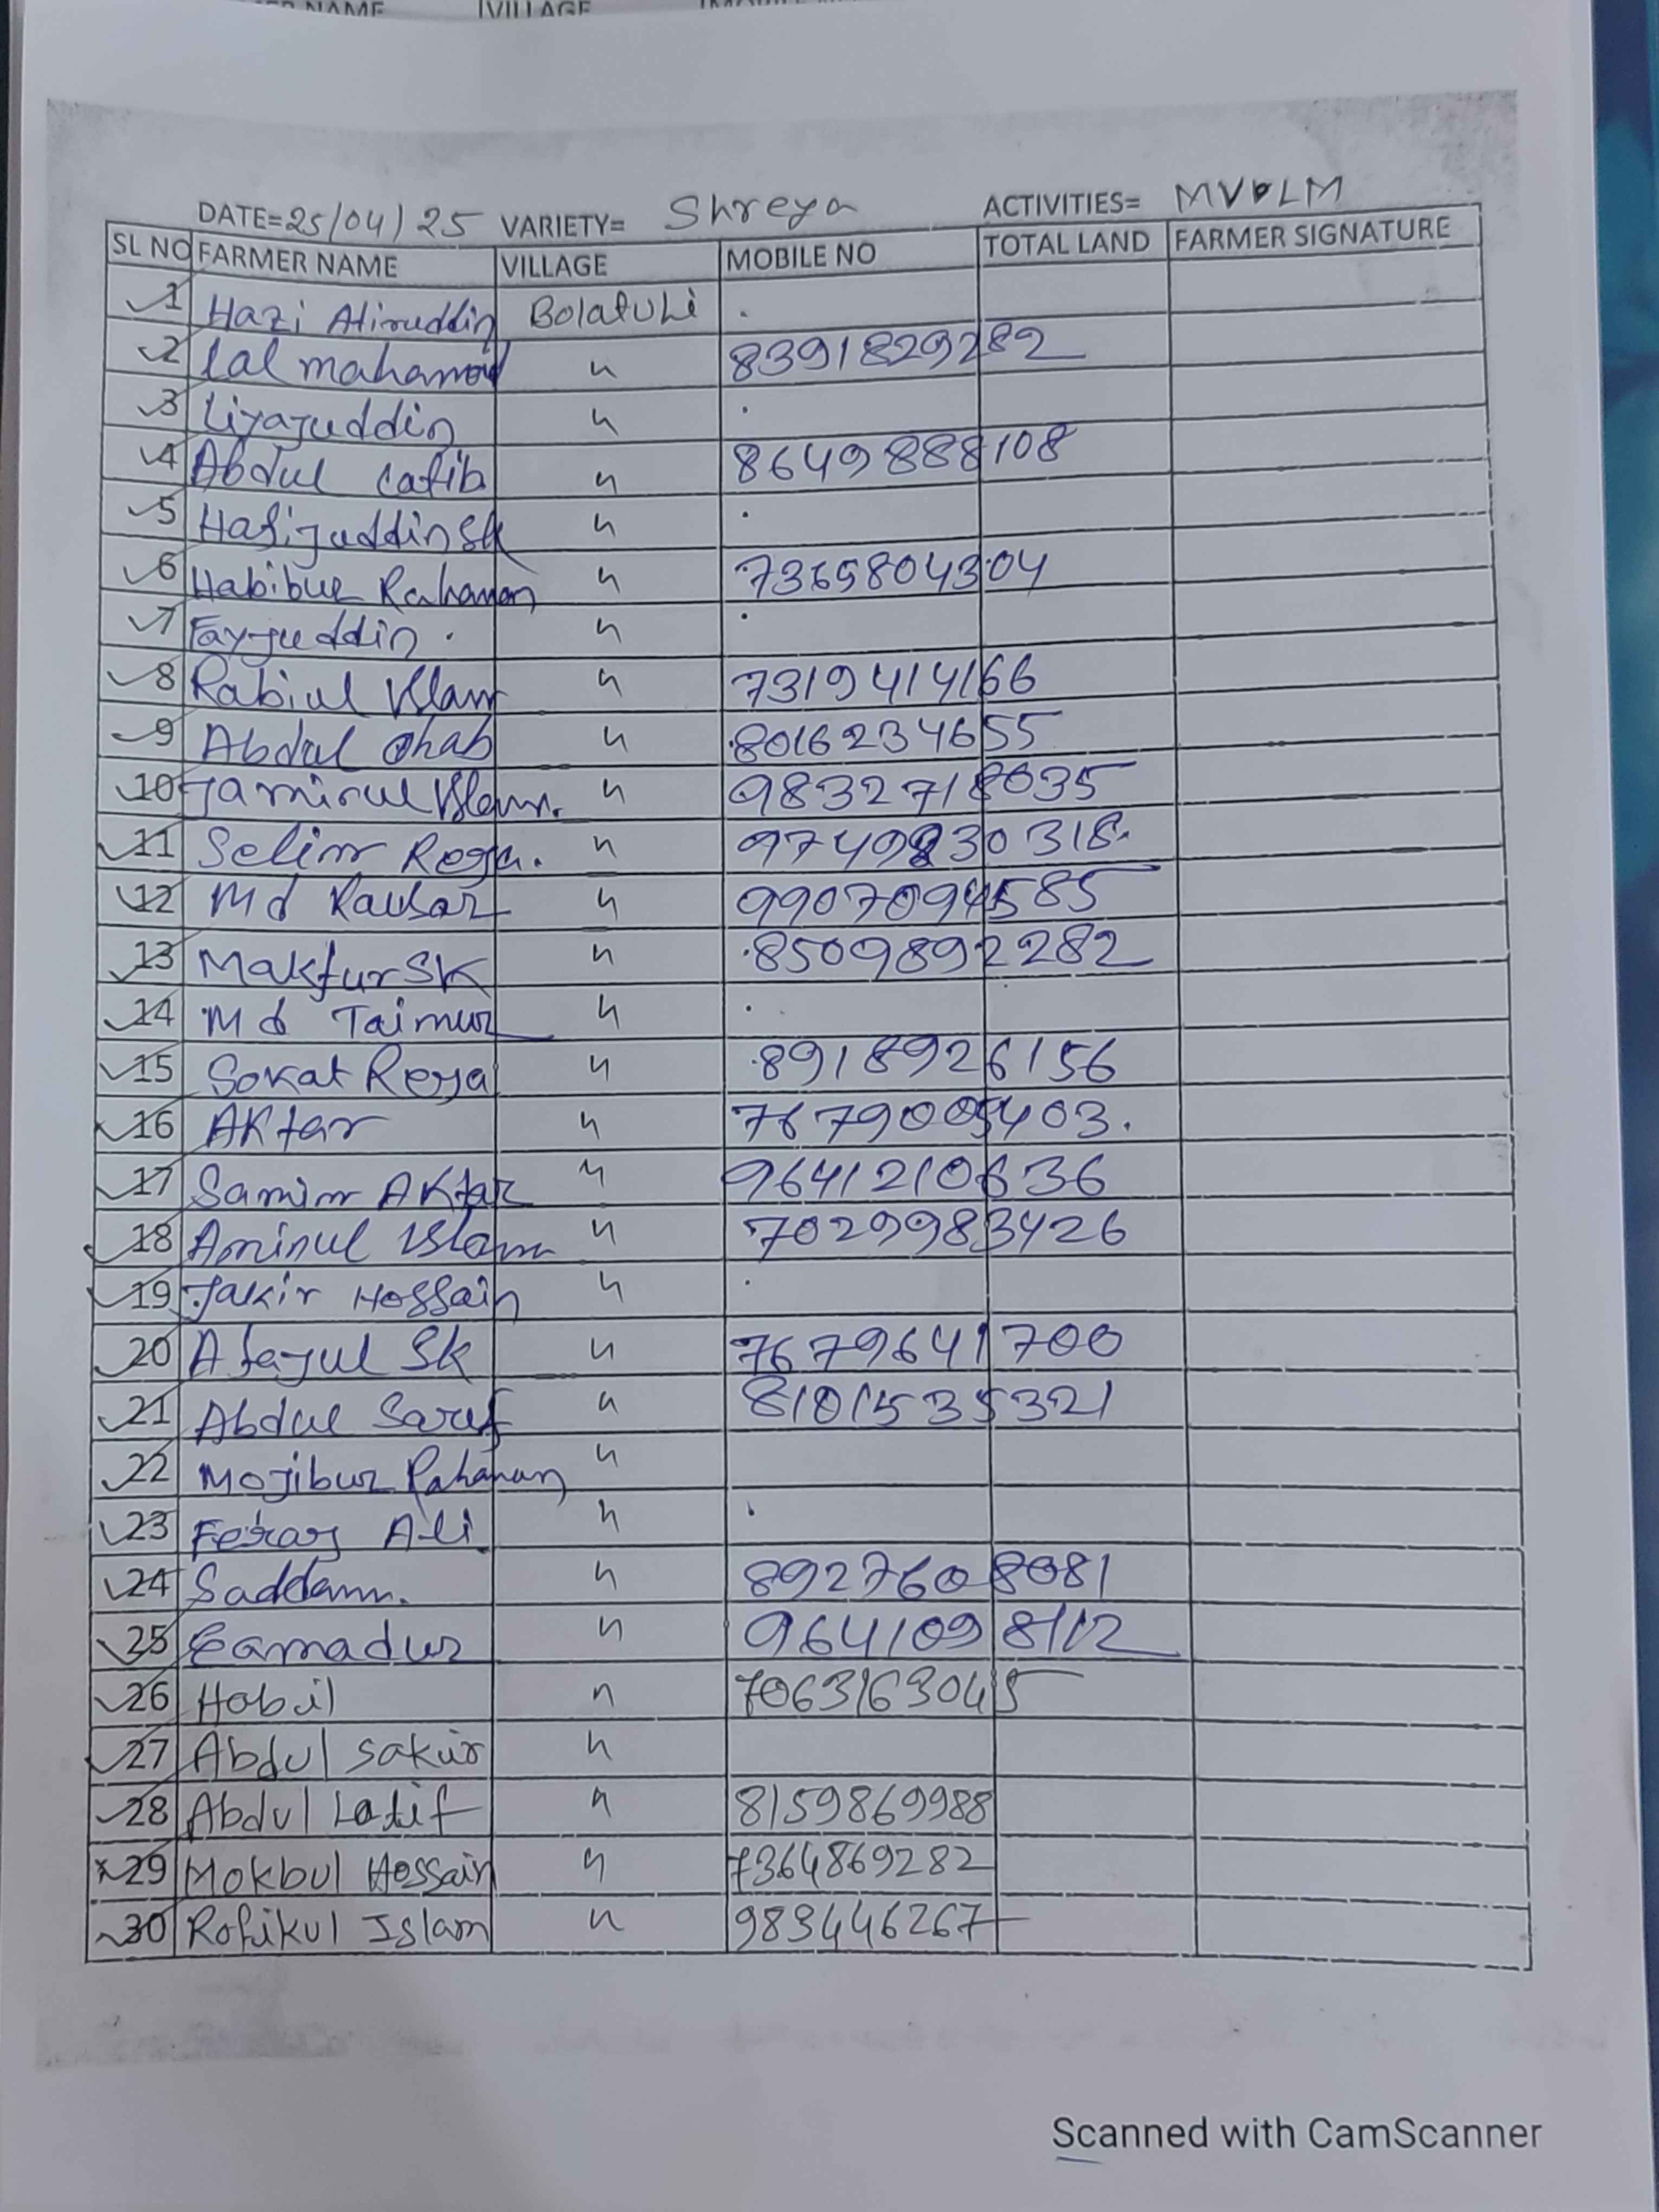 VILLAGE
DATE=25/04/25 VARIETY= Shreya ACTIVITIES= MVLM
SL NO FARMER NAME VILLAGE MOBILE NO TOTAL LAND FARMER SIGNATURE
1 Hazi Aliruddin
2 Lal mahamod 〃 8391829282
3 Liyajuddin 〃
4 Abdul Latib 〃 8649888108
5 Hafijuddin SK 〃
6 Habibur Rahaman 〃 7365804304
7 Fayjuddin . 〃
8 Rabiul Islam 〃 7319414166
9 Abdul Ohab 〃 8016234655
10 Jamirul Islam. 〃 9832718035
11 Selim Reja. 〃 9749830318
12 Md Kausar 〃 9907094585
13 Makfur SK 〃 8509892282
14 Md Taimur 〃
15 Sokat Reja 〃 8918926156
16 AKtar 〃 7679005403.
17 Samim AKtar 〃 9641210636
18 Aminul Islam 〃 7029983426
19 Jakir Hossain 〃
20 Afajul Sk 〃 7679641700
21 Abdul Saruf 〃 8101535321
22 Mojibur Rahaman 〃
23 Feraj Ali 〃
24 Saddam. 〃 8927608081
25 Eamadur 〃 9641098112
26 Hobil 〃 7063163045
27 Abdul Sakur 〃
28 Abdul Latif 〃 8159869988
29 Mokbul Hossain 〃 7364869282
30 Rofikul Islam 〃 983446267
Scanned with CamScanner